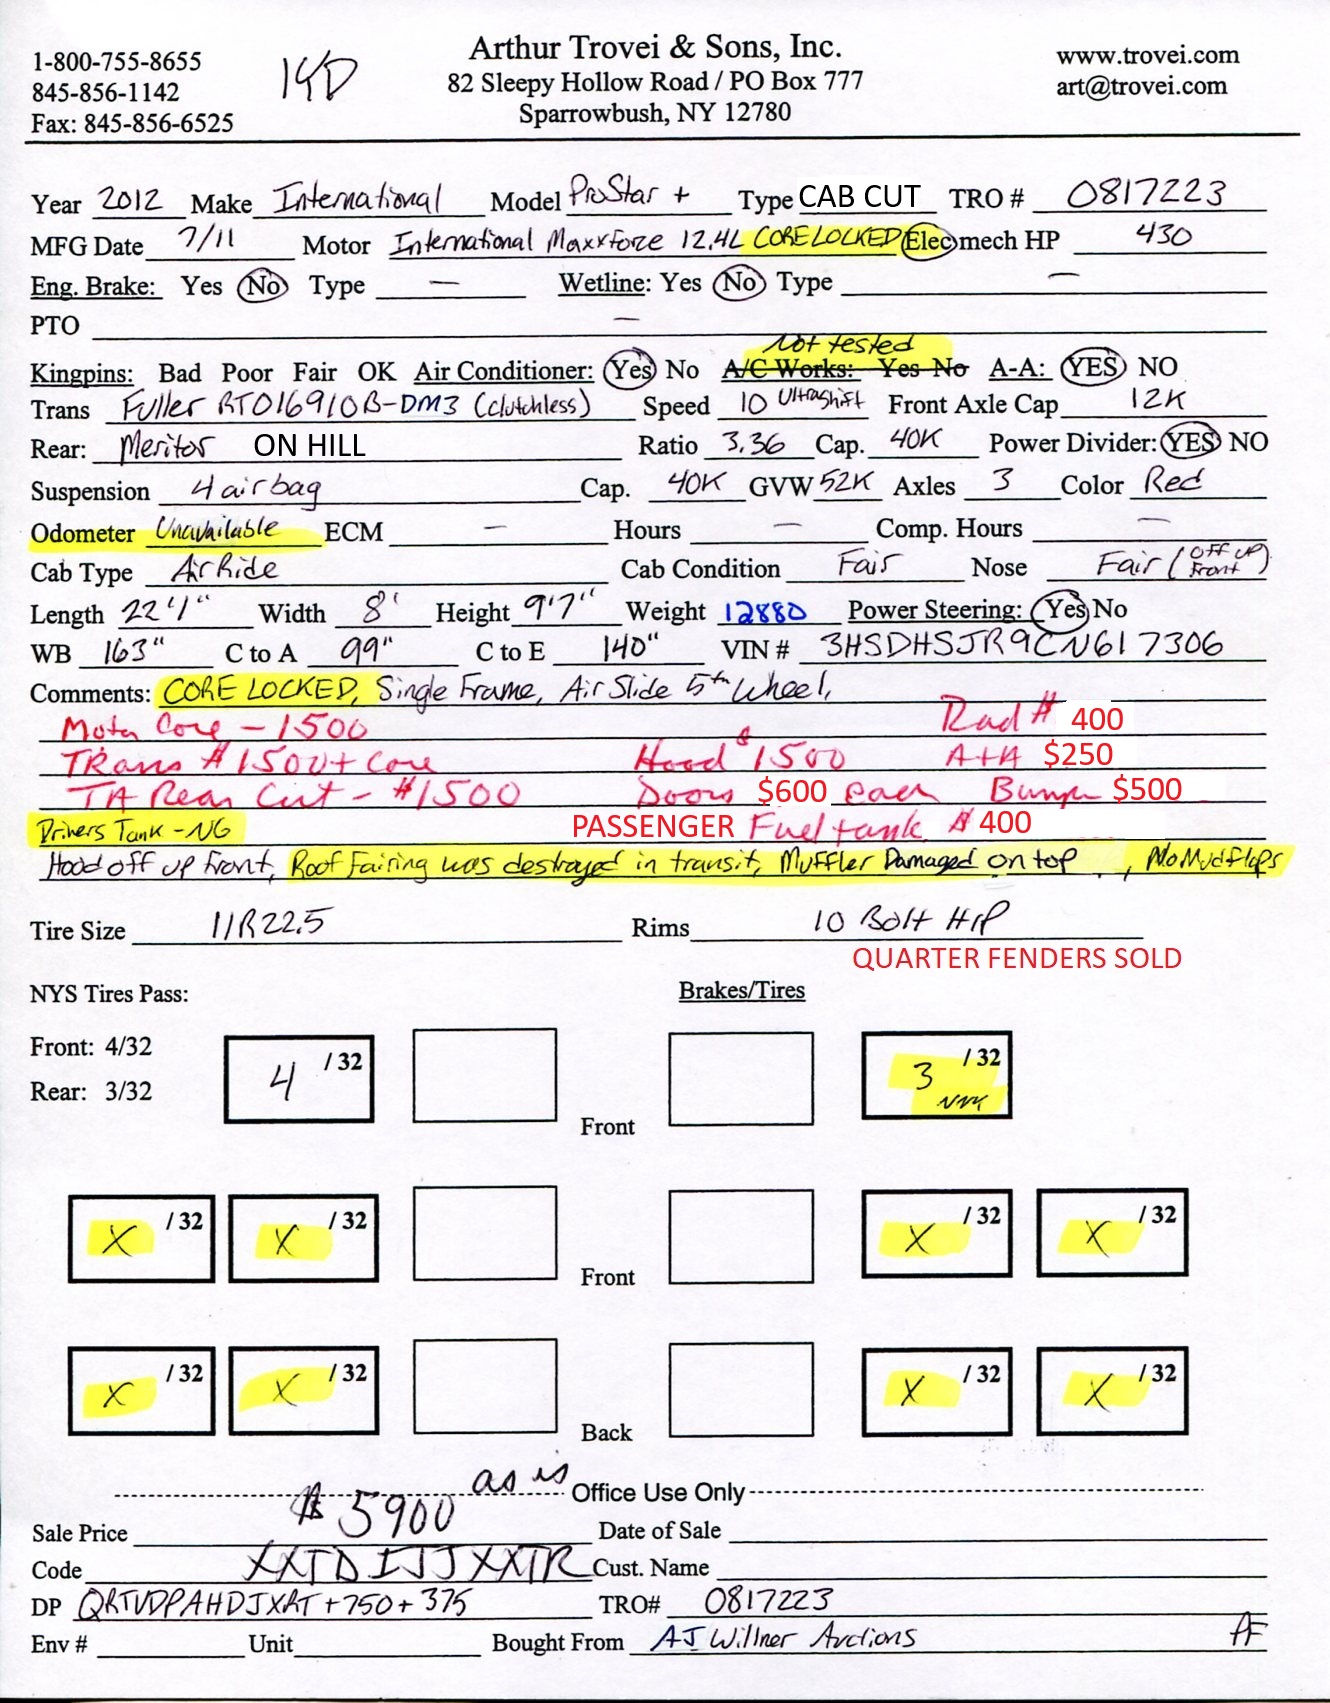 1-800-755-8655
845-856-1142
Fax: 845-856-6525
Arthur Trovei & Sons, Inc.
82 Sleepy Hollow Road / PO Box 777
Sparrowbush, NY 12780
www.trovei.com
art@trovei.com
Year 2012 Make International Model ProStar + Type CAB CUT TRO # 0817223
MFG Date 7/11 Motor International Maxxforce 12.4L CORE LOCKED Elec mech HP 430
Eng. Brake: Yes No Type — Wetline: Yes No Type —
PTO —
Not tested
Kingpins: Bad Poor Fair OK Air Conditioner: Yes No A/C Works: Yes No A-A: YES NO
Trans Fuller RTO16910B-DM3 (clutchless) Speed 10 Ultrashift Front Axle Cap 12K
Rear: Meritor ON HILL Ratio 3.36 Cap. 40K Power Divider: YES NO
Suspension 4 airbag Cap. 40K GVW 52K Axles 3 Color Red
Odometer Unavailable ECM — Hours — Comp. Hours —
Cab Type Air Ride Cab Condition Fair Nose Fair (OFF UP Front)
Length 22'1" Width 8' Height 9'7" Weight 12880 Power Steering: Yes No
WB 163" C to A 99" C to E 140" VIN # 3HSDHSJR9CN617306
Comments: CORE LOCKED, Single Frame, Air Slide 5th Wheel,
Motor Core - 1500 Rad # 400
Trans # 1500 + Core Hood $ 1500 A+A $250
TA Rear Cut - #1500 Doors $600 each Bumper $500
Drivers Tank - NG PASSENGER Fuel tank # 400
Hood off up front, Roof Fairing was destroyed in transit, Muffler Damaged on top, No Mudflaps
Tire Size 11R22.5 Rims 10 Bolt H/P
QUARTER FENDERS SOLD
NYS Tires Pass: Brakes/Tires
Front: 4/32
Rear: 3/32
4 /32 Front 3 /32
X /32 X /32 Front X /32 X /32
X /32 X /32 Back X /32 X /32
as is Office Use Only
Sale Price $ 5900 Date of Sale
Code XXTDIJJXXTR Cust. Name
DP QRTVDPAHDJXRT + 750 + 375 TRO# 0817223
Env # Unit Bought From AJ Willner Auctions AF